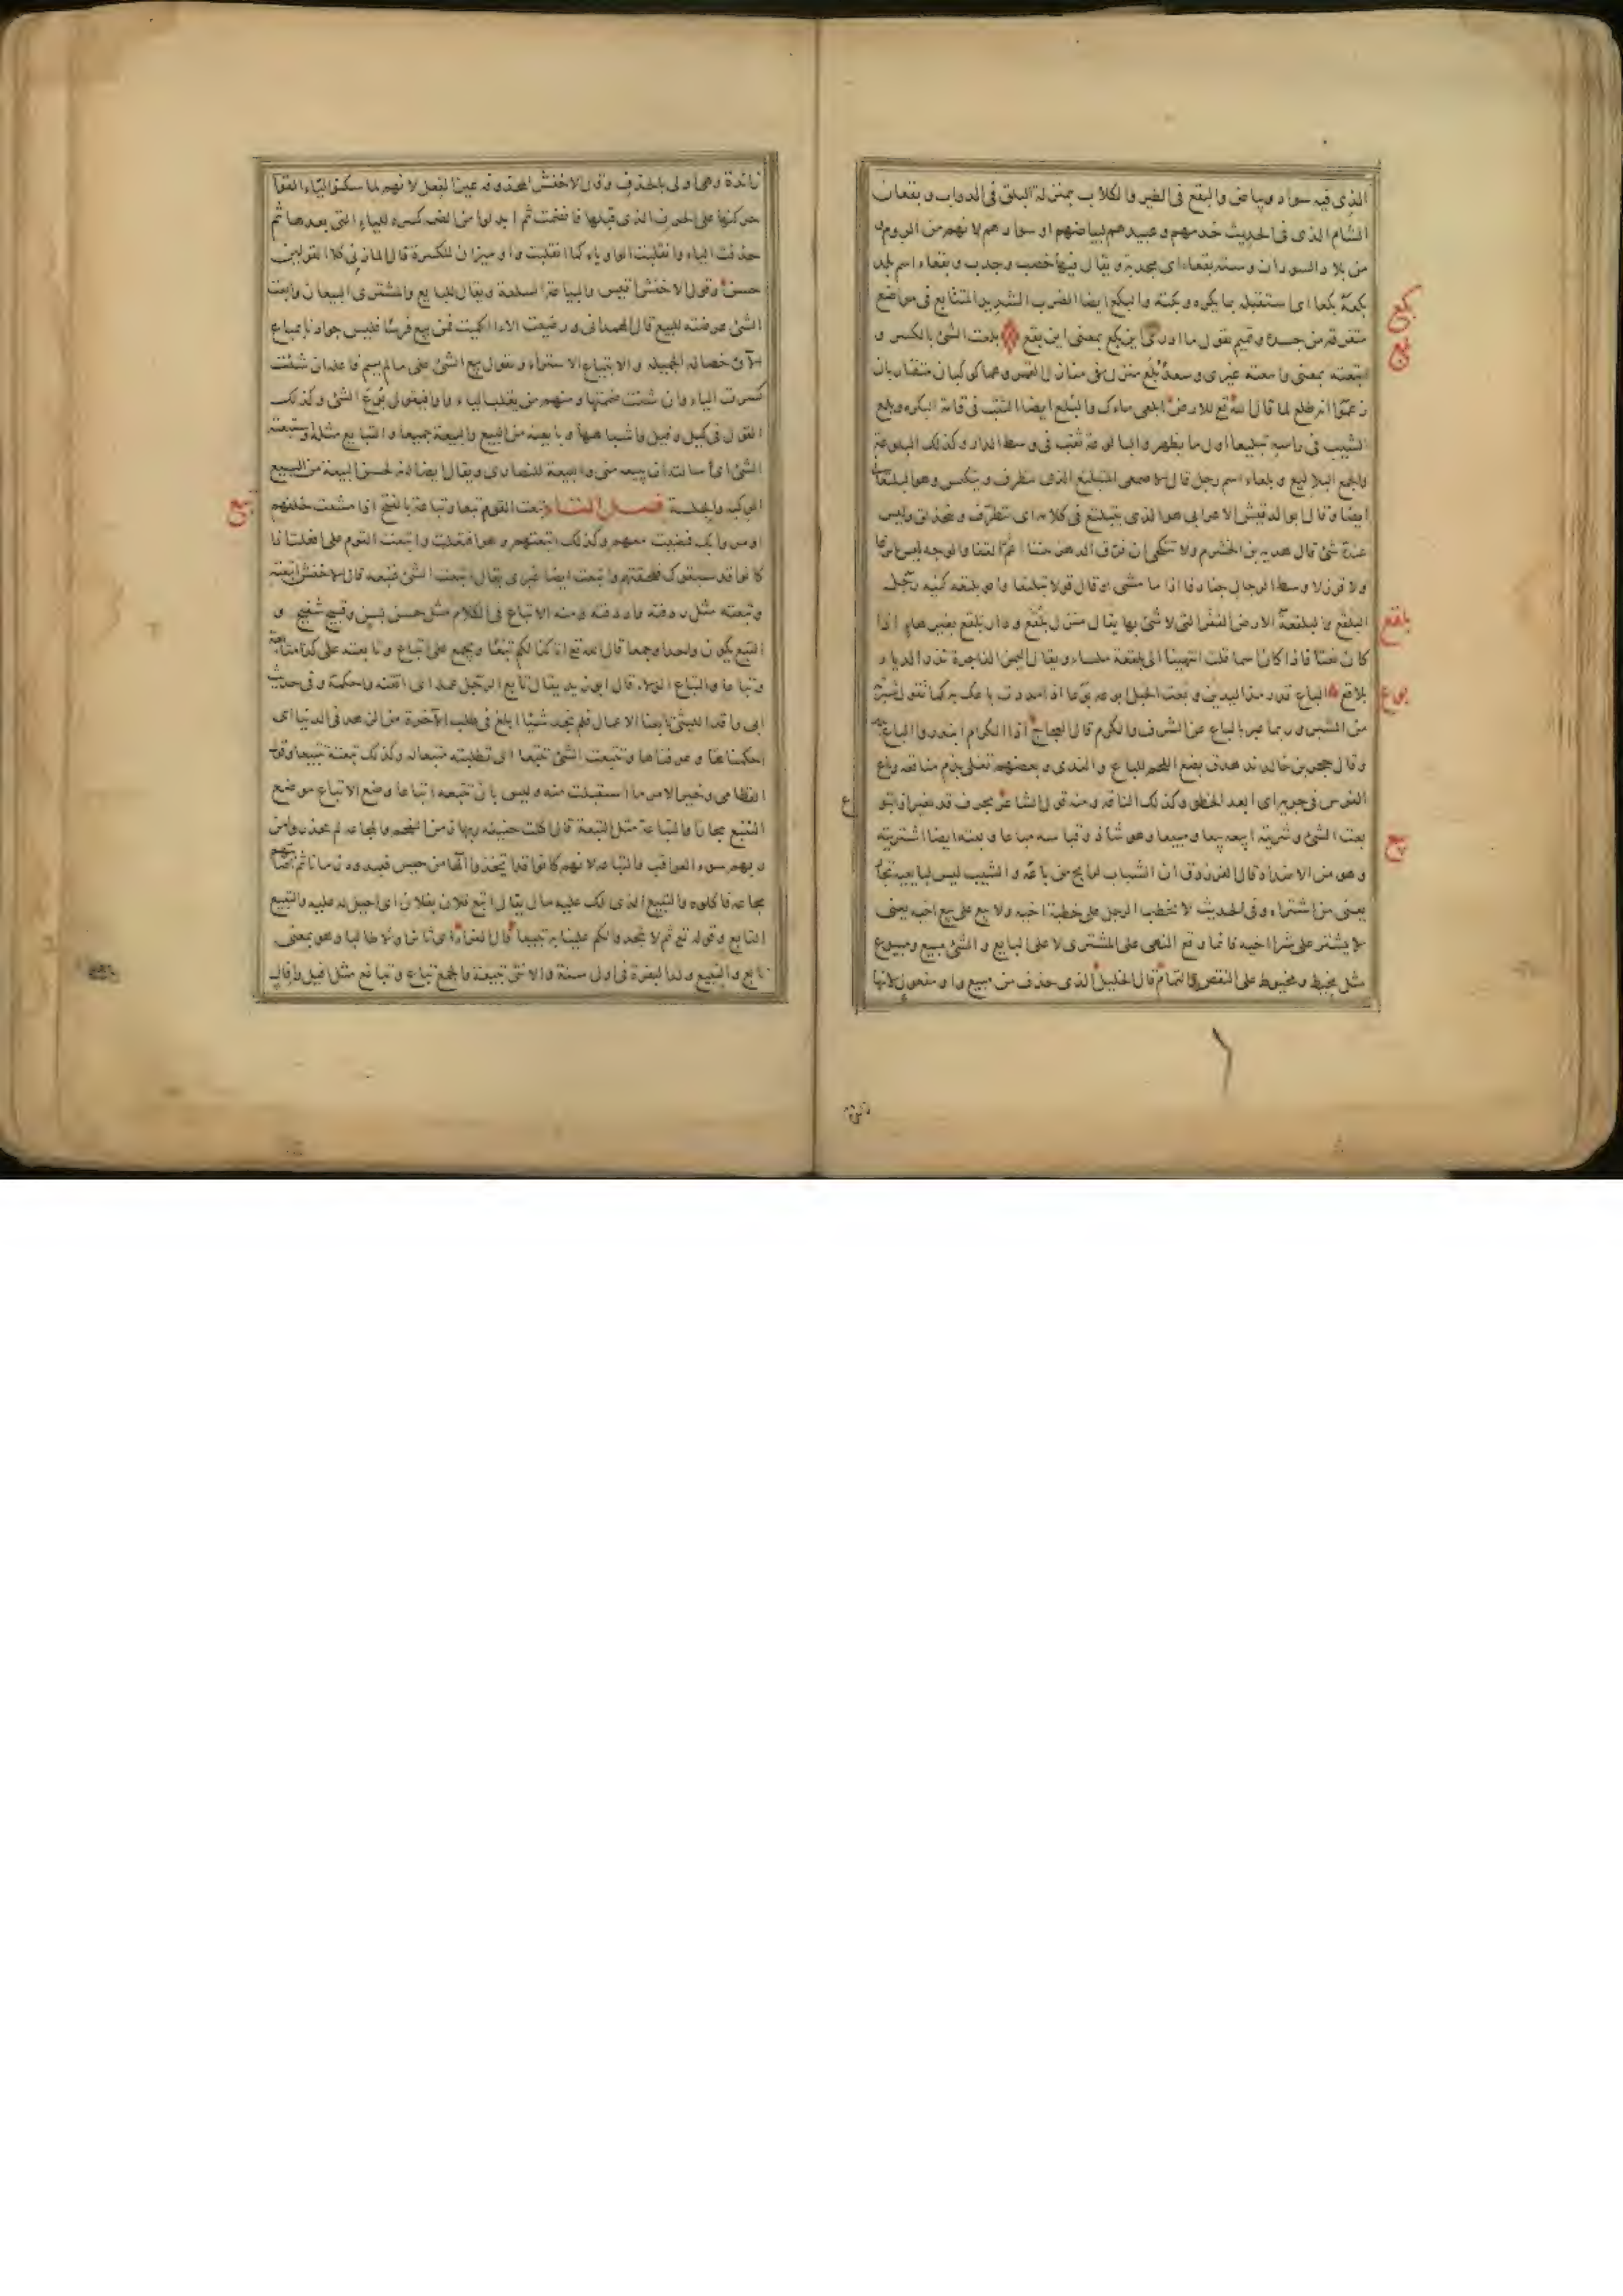 الذى فيه سواد وبياض والبقع فى الطير والكلاب بمنزلة البلق فى الدواب وبقعان
الشام الذى فى الحديث خدمهم وعبيدهم لبياضهم وسوادهم لانهم من الروم و
من بلاد السودان وسنة بقعاء اى مجدبة ويقال فيها خصب وجدب وبقعاء اسم بلد
بكع
بكعه بكعا اى استقبله بما يكره وبكته والبكع ايضا الضرب الشديد المتتابع فى مواضع
بلع
متفرقة من جسده وتميم تقول ما ادرى اين بكع بمعنى اين بقع بلعت الشئ بالكسر و
ابتلعته بمعنى وابلعته غيرى وسعد بلع منزل من منازل القمر وهما كوكبان متقاربان
زعموا انه طلع لما قال الله تع للارض ابلعى ماءك والبلع ايضا الثقب فى قامة البكره وبلع
الشيب فى راسه تبليعا اول ما يظهر والبالوعة ثقب فى وسط الدار وكذلك البلوعة
والجمع البلاليع وبلعاء اسم رجل قال الاصمعى المتبلتع الذى يتظرف ويتكيس وهو البلتعانى
ايضا وقال ابو الدقيش الاعرابى هو الذى يتبلتع فى كلامه اى يتظرف ويتحذلق وليس
عنده شئ قال هدبه بن الخشرم ولا تنكحى ان فرق الدهر بيننا اغم القفا والوجه ليس بانزعا
ولا قرزلا وسط الرجال جنادفا اذا ما مشى او قال قولا تبلتعا وابو بلتعه كنيه رجل
بلقع
البلقع والبلقعة الارض القفر التى لا شئ بها يقال منزل بلقع ودار بلقع بغير هاء اذا
كان نعتا فاذا كان اسما قلت انتهينا الى بلقعة ملساء ويقال اليمين الفاجرة تذر الديار
بوع
بلاقع الباع قدر مد اليدين وبعت الحبل ابوعه بوعا اذا مددت باعك به كما تقول شبرته
من الشبر وربما عبر بالباع عن الشرف والكرم قال العجاج اذا الكرام ابتدروا الباع بدر
وقال حجر بن خالد ندهدق بضع اللحم للباع والندى وبعضهم تغلى بذم مناقعه وباع
الفرس فى جريه اى ابعد الخطو وكذلك الناقه ومنه قول الشاعر بحرف قد تغير اذا تبوع
بيع
بعت الشئ وشريته ابيعه بيعا ومبيعا وهو شاذ وقياسه مباعا وبعته ايضا اشتريته
وهو من الاضداد قال الفرزدق ان الشباب لرابح من باعه والشيب ليس لبايعيه تجار
يعنى من اشتراه وفى الحديث لا يخطب الرجل على خطبة اخيه ولا يبع على بيع اخيه يعنى
لا يشتر على شراء اخيه فانما وقع النهى على المشترى لا على البايع والشئ مبيع ومبيوع
مثل مخيط ومخيوط على النقص والتمام قال الخليل الذى حذف من مبيع واو مفعول لانها
زائدة
زائدة وهى اولى بالحذف وقال الاخفش المحذوفه عين الفعل لانهم لما سكنوا الياء القوا
حركتها على الحرف الذى قبلها فانضمت ثم ابدلوا من الضمه كسره للياء التى بعدها ثم
حذفت الياء وانقلبت الواو ياء كما انقلبت واو ميزان للكسرة قال المازنى كلا القولين
حسن وقول الاخفش اقيس والبياعة السلعة ويقال للبايع والمشترى البيعان وابعت
الشئ عرضته للبيع قال الهمدانى ورضيت الاء الكميت فمن يبع فرسا فليس جوادنا بمباع
آلاؤه خصاله الجميله والابتياع الاشتراء وتقول بيع الشئ على ما لم يسم فاعله ان شئت
كسرت الياء وان شئت ضمتها ومنهم من يقلب الياء واوا فيقول بوع الشئ وكذلك
القول فى كيل وقيل واشباهها وبايعته من البيع والبيعة جميعا والتبايع مثله واستبعته
الشئ اى سالته ان يبيعه منى والبيعة للنصارى ويقال ايضا انه لحسن البيعة من البيع
تبع
الركبه والجلسة فصل التاء تبعت القوم تبعا وتباعة بالفتح اذا مشيت خلفهم
او مروا بك فمضيت معهم وكذلك اتبعتهم وهو افتعلت واتبعت القوم على افعلت اذا
كانوا قد سبقوك فلحقتهم واتبعت ايضا غيرى يقال اتبعته الشئ فتبعه قال الاخفش تبعته
واتبعته مثل ردفته واردفته ومنه الاتباع فى الكلام مثل حسن بسن وقبيح شقيح و
التبع يكون واحدا وجمعا قال الله تع انا كنا لكم تبعا ويجمع على اتباع وتابعته على كذا متابعة
وتباعا والتباع الولاء قال ابو زيد يقال تابع الرجل عمله اى اتقنه واحكمه وفى حديث
ابى واقد الليثى تابعنا الاعمال فلم نجد شيئا ابلغ فى طلب الآخرة من الزهد فى الدنيا اى
احكمناها وعرفناها وتتبعت الشئ تتبعا اى تطلبته متبعا له وكذلك تبعته تتبيعا وقال
القطامى وخير الامر ما استقبلت منه وليس بان تتبعه اتباعا وضع الاتباع موضع
التتبع مجازا والتباعة مثل التبعة قال اكلت حنيفة ربها زمن التقحم والمجاعه لم يحذروا من
ربهم سوء العواقب والتباعه لانهم كانوا قد اتخذوا الها من حيس فعبدوه زمانا ثم اصابتهم
مجاعة فاكلوه والتبيع الذى لك عليه مال يقال اتبع فلان بفلان اى احيل له عليه والتبيع
التابع وقوله تع ثم لا تجدوا لكم علينا به تبيعا قال الفراء اى ثائرا ولا طالبا وهو بمعنى
تابع والتبيع ولد البقرة فى اول سنة والانثى تبيعة والجمع تباع وتبائع مثل افيل وافائل